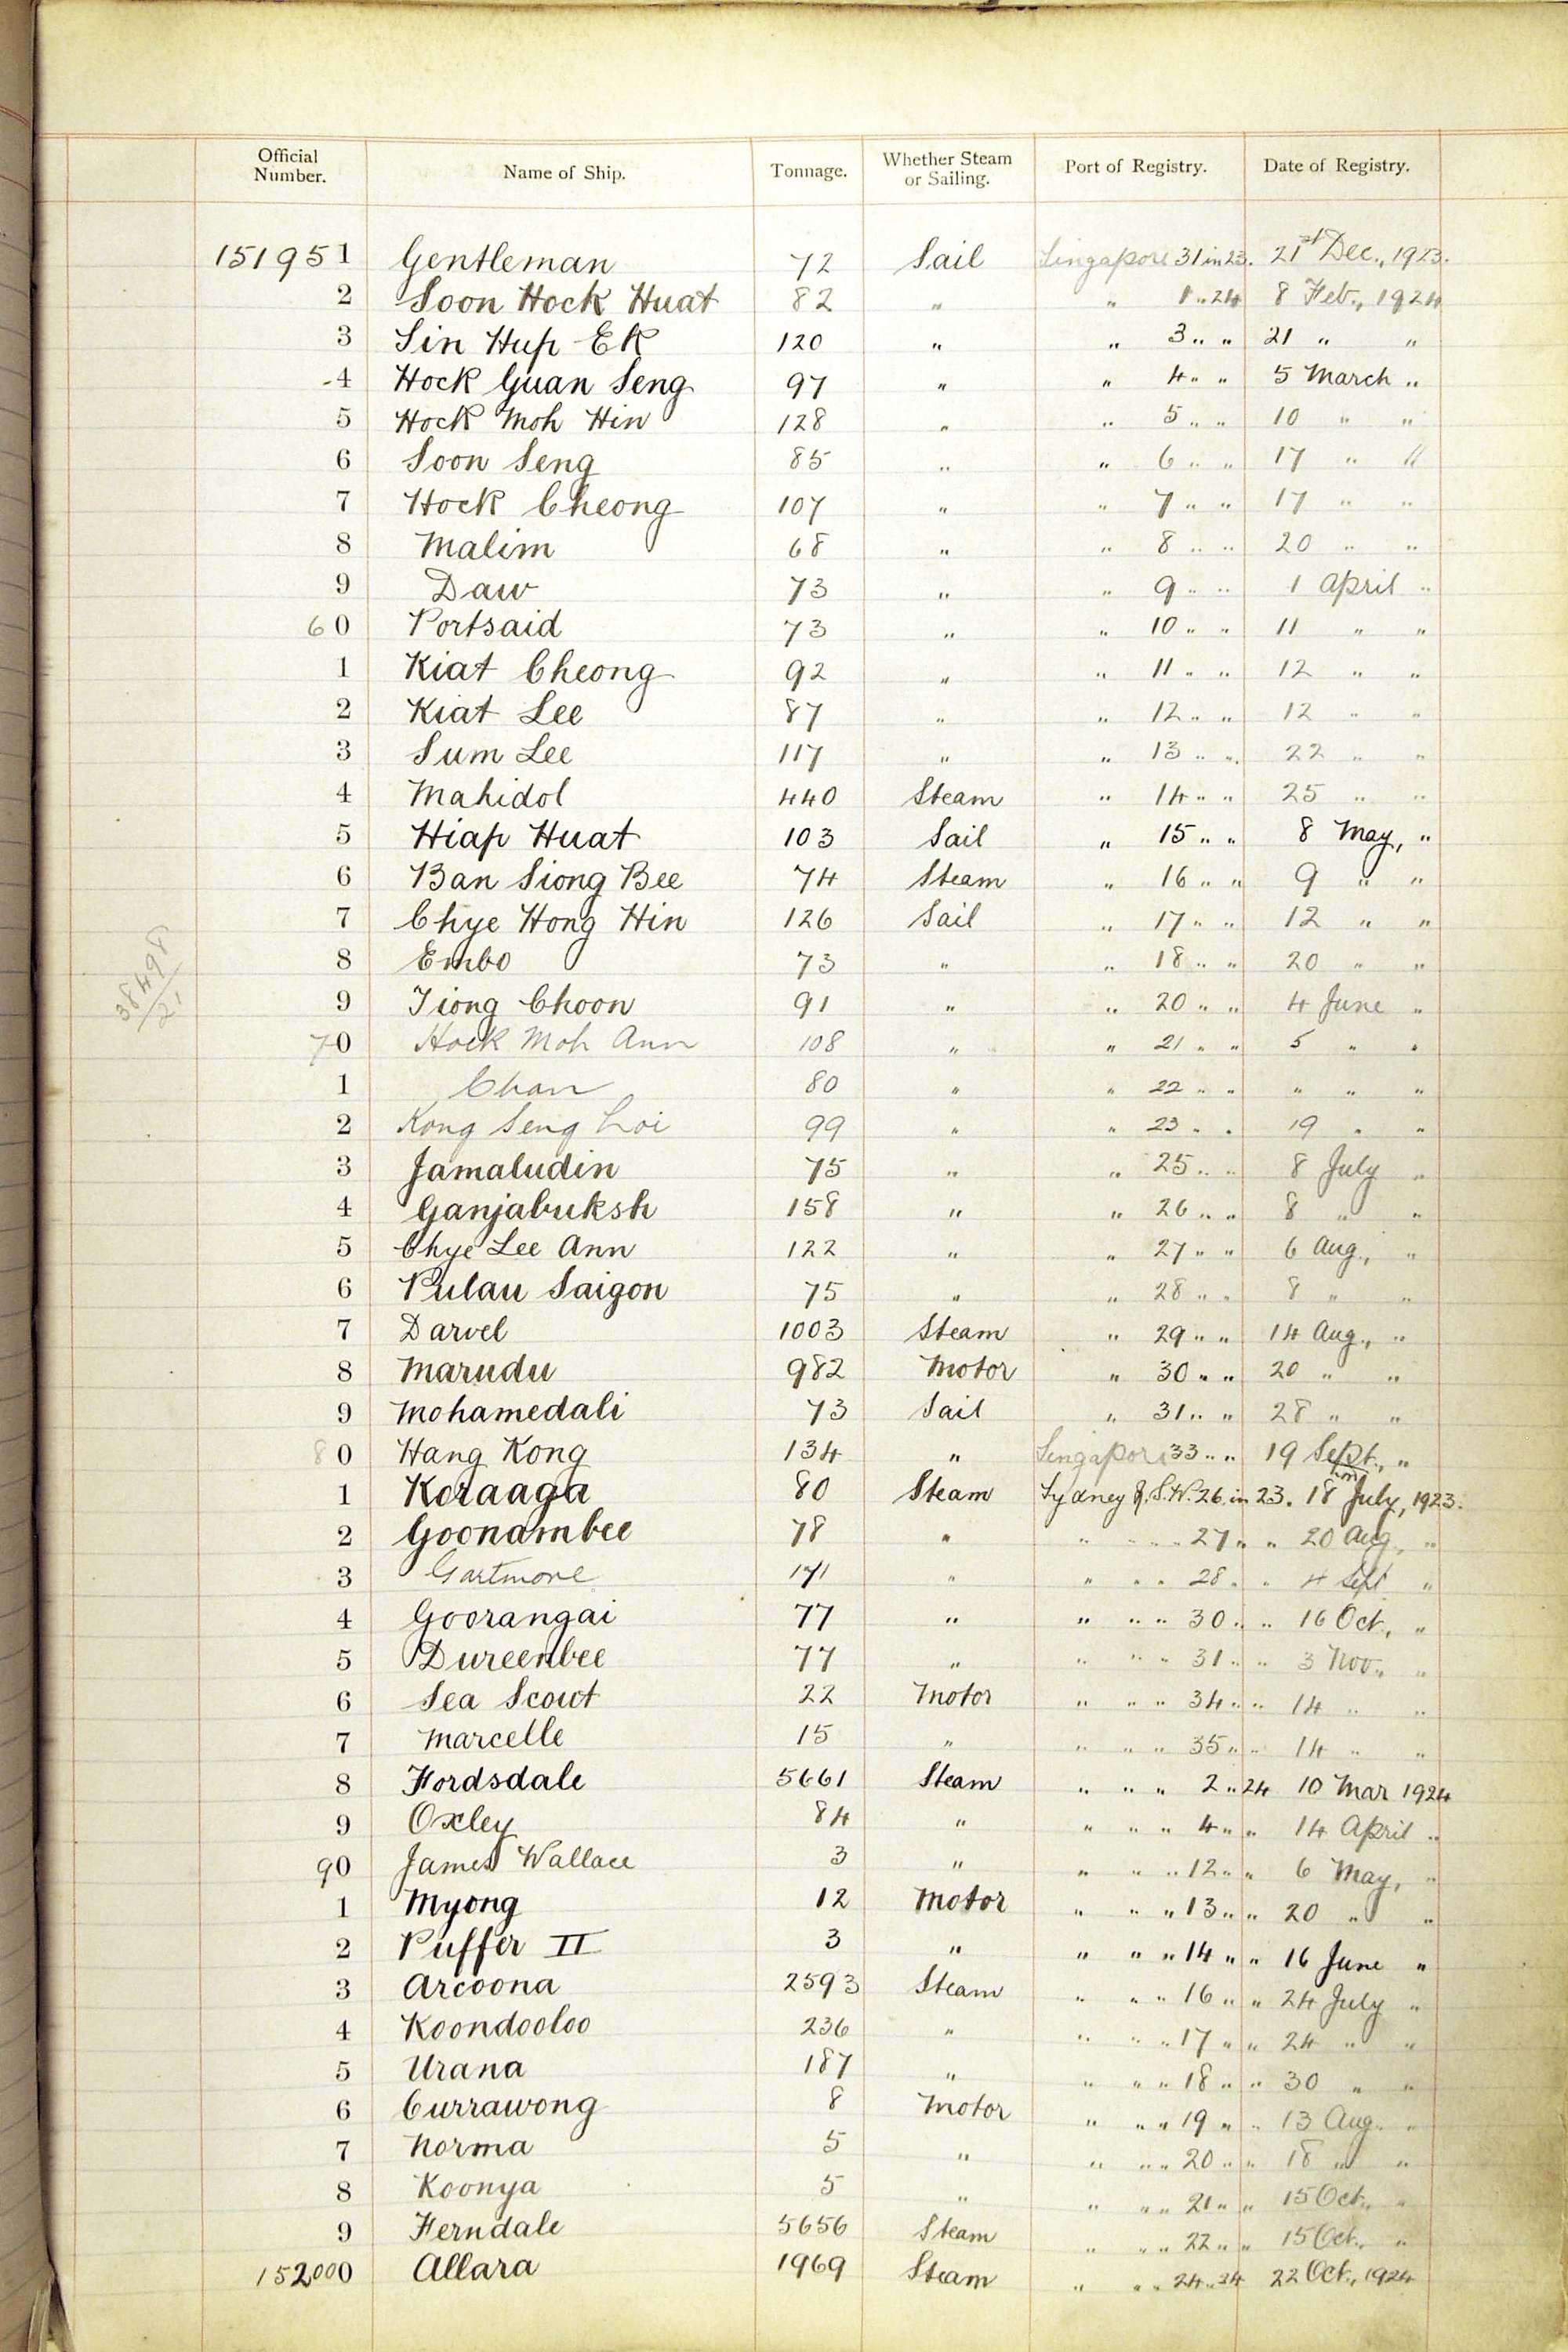 Official Number. Name of Ship. Tonnage. Whether Steam or Sailing. Port of Registry. Date of Registry.
151951 Gentleman 72 Sail Singapore 31 in 23. 21st Dec., 1923.
2 Soon Hock Huat 82 " " 1 " 24 8 Feb., 1924
3 Sin Hup Ek 120 " " 3 " " 21 " "
4 Hock Guan Seng 97 " " 4 " " 5 March "
5 Hock Moh Hin 128 " " 5 " " 10 " "
6 Soon Seng 85 " " 6 " " 17 " "
7 Hock Cheong 107 " " 7 " " 17 " "
8 Malim 68 " " 8 " " 20 " "
9 Daw 73 " " 9 " " 1 April "
60 Portsaid 73 " " 10 " " 11 " "
1 Kiat Cheong 92 " " 11 " " 12 " "
2 Kiat Lee 87 " " 12 " " 12 " "
3 Sum Lee 117 " " 13 " " 22 " "
4 Mahidol 440 Steam " 14 " " 25 " "
5 Hiap Huat 103 Sail " 15 " " 8 May, "
6 Ban Siong Bee 74 Steam " 16 " " 9 " "
7 Chye Hong Hin 126 Sail " 17 " " 12 " "
8 Embo 73 " " 18 " " 20 " "
38498/21
9 Tiong Choon 91 " " 20 " " 4 June "
70 Hock Moh Ann 108 " " 21 " " 5 " "
1 Chan 80 " " 22 " " " " "
2 Kong Seng Loi 99 " " 23 " " 19 " "
3 Jamaludin 75 " " 25 " " 8 July "
4 Ganjabuksh 158 " " 26 " " 8 " "
5 Chye Lee Ann 122 " " 27 " " 6 Aug., "
6 Pulau Saigon 75 " " 28 " " 8 " "
7 Darvel 1003 Steam " 29 " " 14 Aug., "
8 Marudu 982 Motor " 30 " " 20 " "
9 Mohamedali 73 Sail " 31 " " 28 " "
80 Hang Kong 134 " Singapore 33 " " 19 Sept., "
1 Koraaga 80 Steam Sydney N.S.W. 26 in 23. 18 July, 1923.
2 Goonambee 78 " " " " 27 " " 20 Aug., "
3 Gartmore 171 " " " " 28 " " 4 Sept "
4 Goorangai 77 " " " " 30 " " 16 Oct., "
5 Dureenbee 77 " " " " 31 " " 3 Nov., "
6 Sea Scout 22 Motor " " " 34 " " 14 " "
7 Marcelle 15 " " " " 35 " " 14 " "
8 Fordsdale 5661 Steam " " " 2 " 24 10 Mar 1924
9 Oxley 84 " " " " 4 " " 14 April "
90 James Wallace 3 " " " " 12 " " 6 May, "
1 Myong 12 Motor " " " 13 " " 20 " "
2 Puffer II 3 " " " " 14 " " 16 June "
3 Arcoona 2593 Steam " " " 16 " " 24 July "
4 Koondooloo 236 " " " " 17 " " 24 " "
5 Urana 187 " " " " 18 " " 30 " "
6 Currawong 8 Motor " " " 19 " " 13 Aug. "
7 Norma 5 " " " " 20 " " 18 " "
8 Koonya 5 " " " " 21 " " 15 Oct., "
9 Ferndale 5656 Steam " " " 22 " " 15 Oct., "
152000 Allara 1969 Steam " " " 24 " 24 22 Oct., 1924